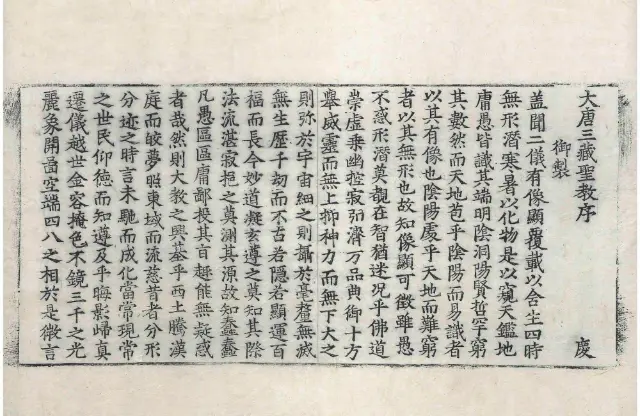 大唐三藏聖教序 慶
御製
盖聞二儀有像顯覆載以含生四時
無形潛寒暑以化物是以窺天鑑地
庸愚皆識其端明陰洞陽賢哲罕窮
其數然而天地苞乎陰陽而易識者
以其有像也陰陽處乎天地而難窮
者以其無形也故知像顯可徵雖愚
不惑形潛莫覩在智猶迷況乎佛道
崇虛乗幽控寂弘濟万品典御十方
舉威靈而無上抑神力而無下大之
則弥於宇宙細之則攝於毫釐無滅
無生歷千劫而不古若隱若顯運百
福而長今妙道凝玄遵之莫知其際
法流湛寂挹之莫測其源故知蠢蠢
凡愚區區庸鄙投其旨趣能無疑惑
者哉然則大教之興基乎西土騰漢
庭而皎夢照東域而流慈昔者分形
分迹之時言未馳而成化當常現常
之世民仰德而知遵及乎晦影歸真
遷儀越世金容掩色不鏡三千之光
麗象開啚空端四八之相於是微言